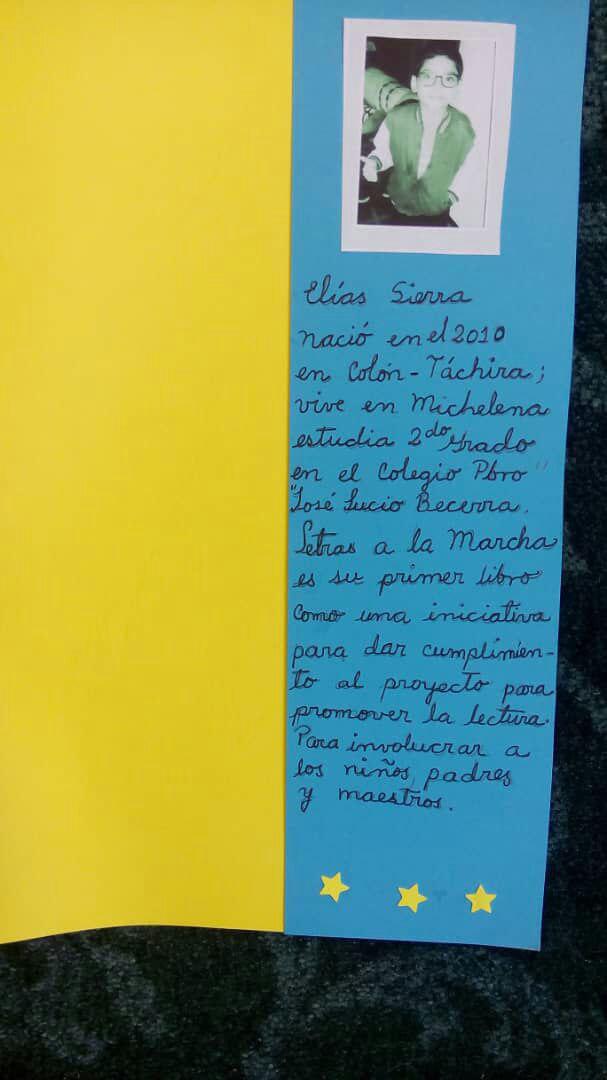 Elías Sierra
nació en el 2010
en Colón - Táchira;
vive en Michelena
estudia 2do grado
en el Colegio Pbro "
"José Lucio Becerra.
Letras a la Marcha
es su primer libro
como una iniciativa
para dar cumplimien-
to al proyecto para
promover la lectura
Para involucrar a
los niños, padres
y maestros.